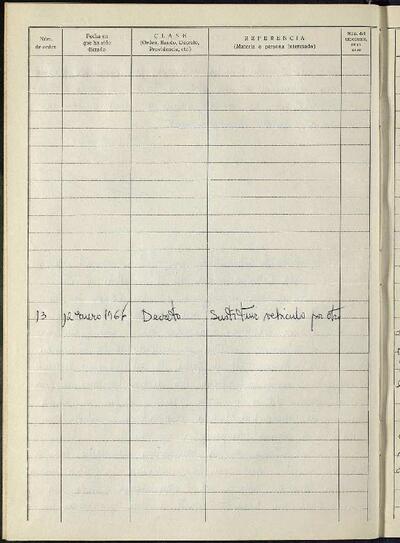 Núm. de orden
Fecha en que ha sido dictado
CLASE
(Orden, Bando, Decreto, Providencia, etc.)
REFERENCIA
(Materia o persona interesada)
Núm. del
13 12 enero 196 Decreto Sustituir vehiculo por otro